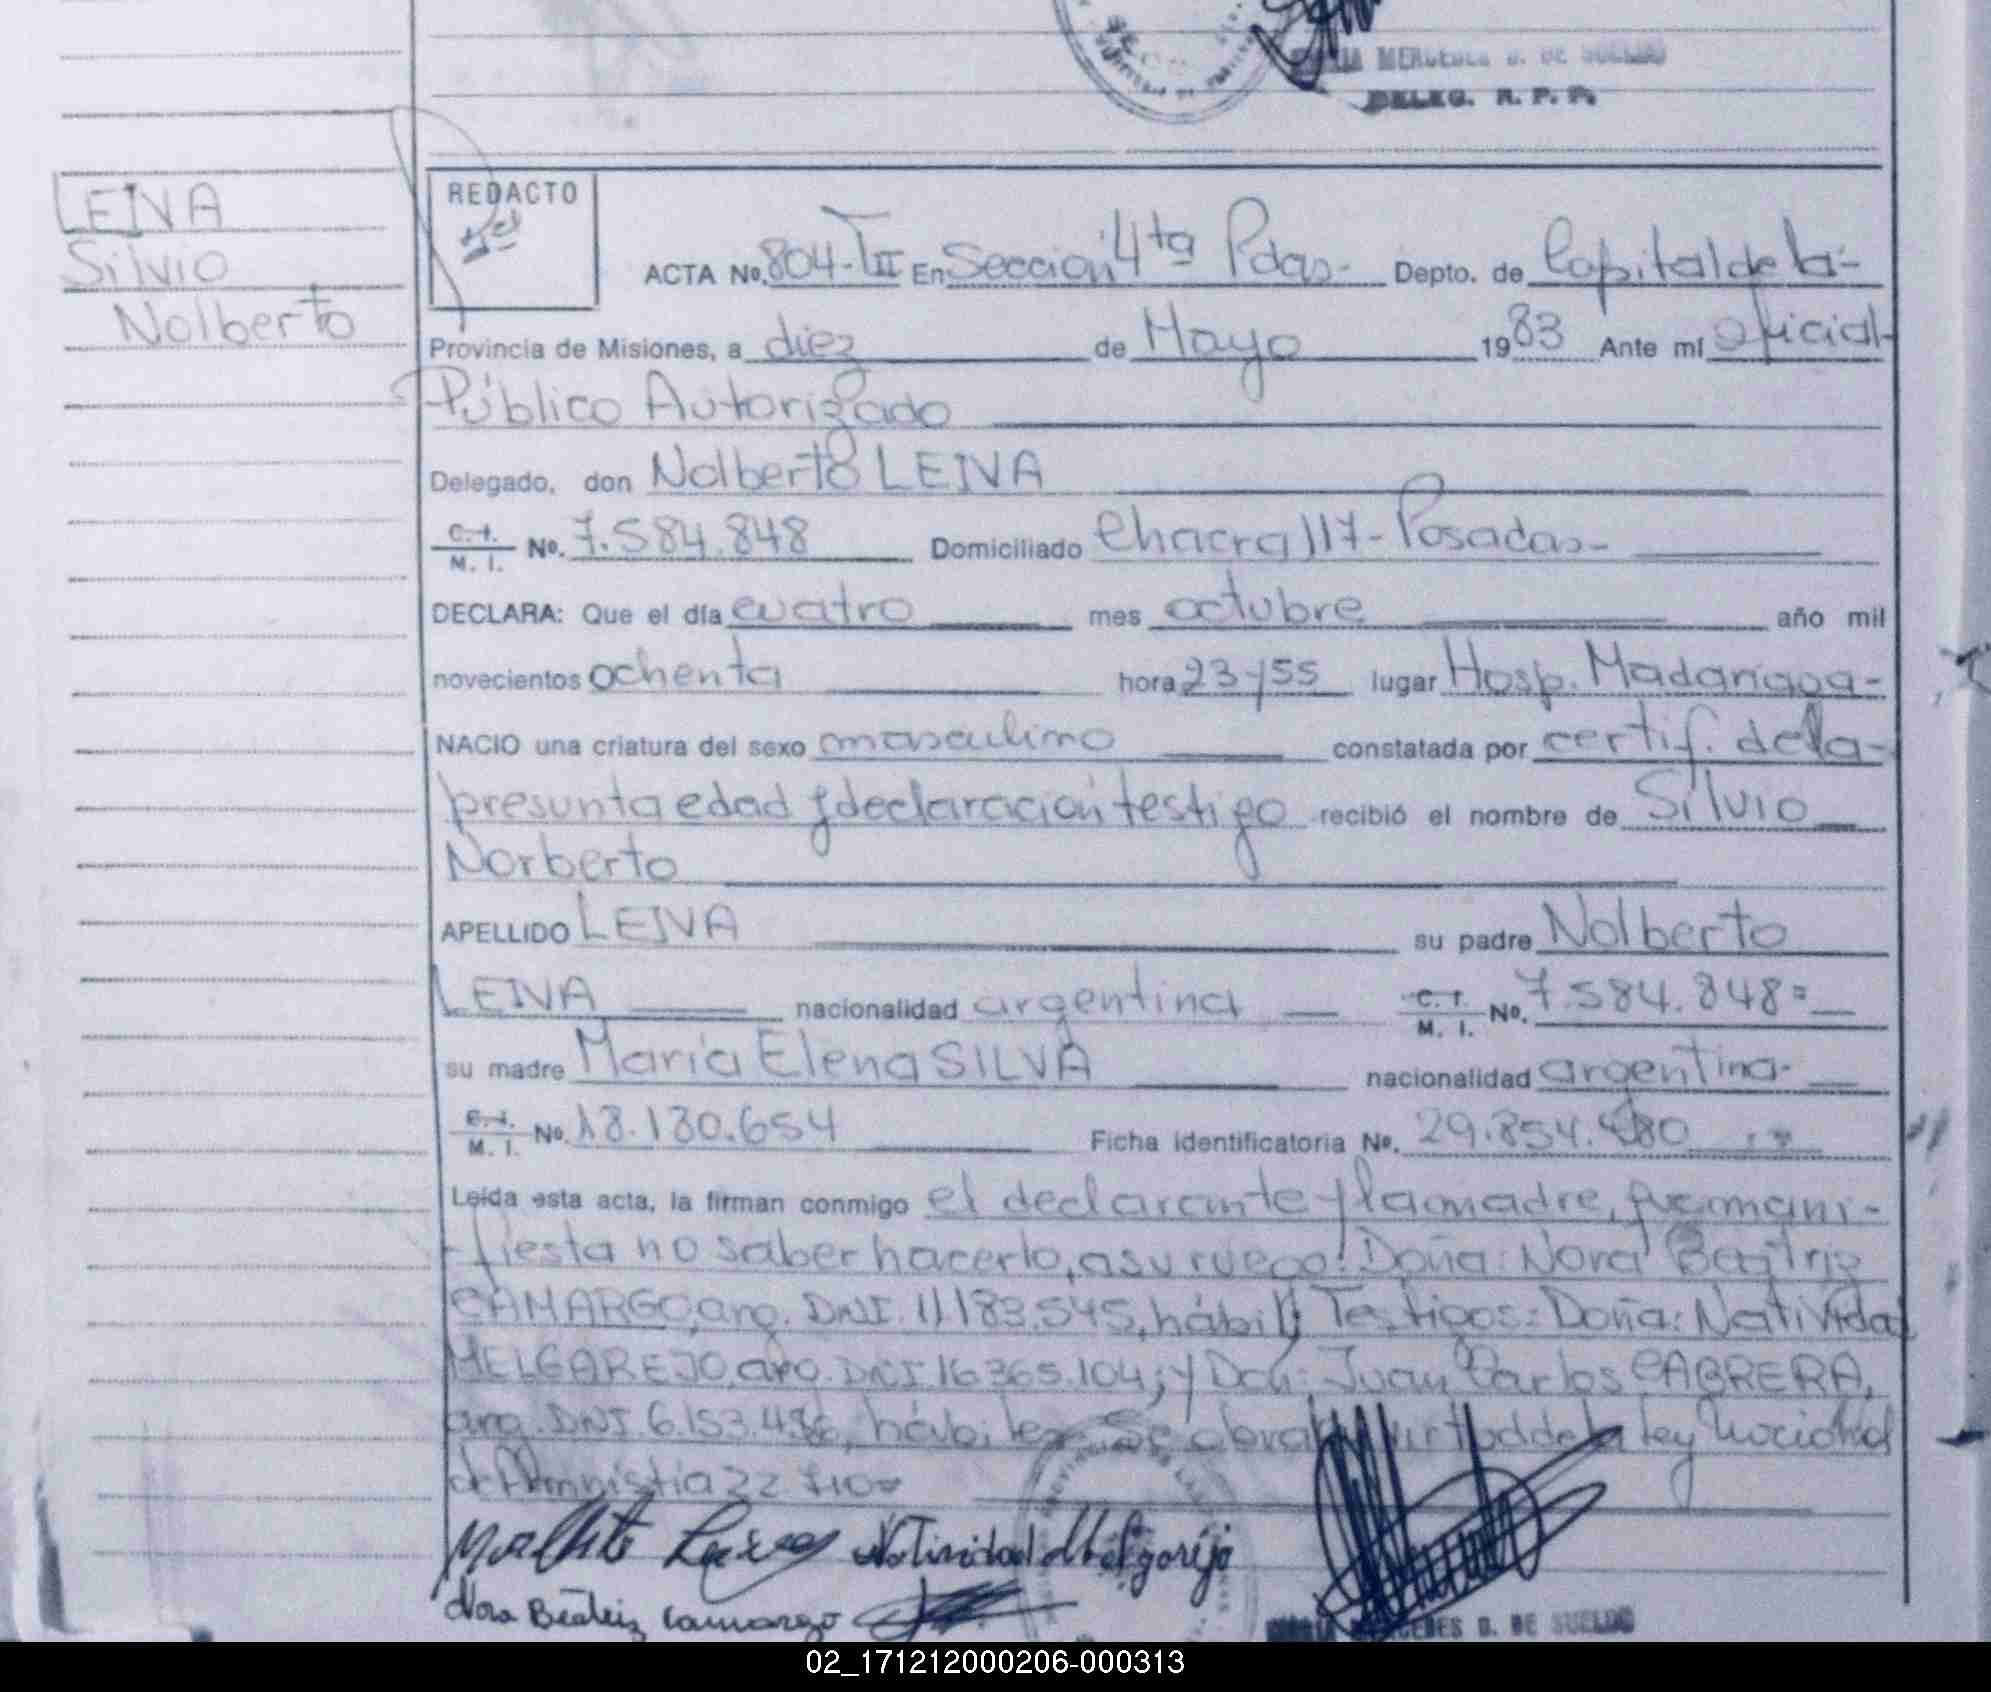 MERCEDES D. DE SUELDO
DELEG. R. P. P.
LEIVA
Silvio
Nolberto
REDACTO
ACTA No. 804-TII En Sección 4ta Pdas- Depto. de Capital de la-
Provincia de Misiones, a diez de Mayo 1983 Ante mí Oficial-
Público Autorizado
Delegado, don Nolberto LEIVA
C. I. M. I. No. 7.584.848 Domiciliado Chacra 117-Posadas-
DECLARA: Que el día cuatro mes octubre año mil
novecientos ochenta hora 23y55 lugar Hosp. Madariaga-
NACIO una criatura del sexo masculino constatada por certif. de la-
presunta edad y declaración testigo recibió el nombre de Silvio
Norberto
APELLIDO LEIVA su padre Nolberto
LEIVA nacionalidad argentina C. I. M. I. No. 7.584.848=
su madre María Elena SILVA nacionalidad argentina-
C. I. M. I. No. 18.130.654 Ficha identificatoria No. 29.854.480
Leída esta acta, la firman conmigo el declarante y la madre, que mani-
-fiesta no saber hacerlo, a su ruego: Doña: Nora Beatriz
CAMARGO, arg. DNI. 11.183.545, hábil; Testigos: Doña: Natividad
MELGAREJO, arg. DNI 16.365.104; y Don: Juan Carlos CABRERA,
arg. DNI. 6.153.436, hábiles- Se obra virtud de la ley Nacional
de Amnistía 22
Nolberto Leiva Natividad Melgarejo
Nora Beatriz Camargo
MERCEDES D. DE SUELDO
02_171212000206-000313